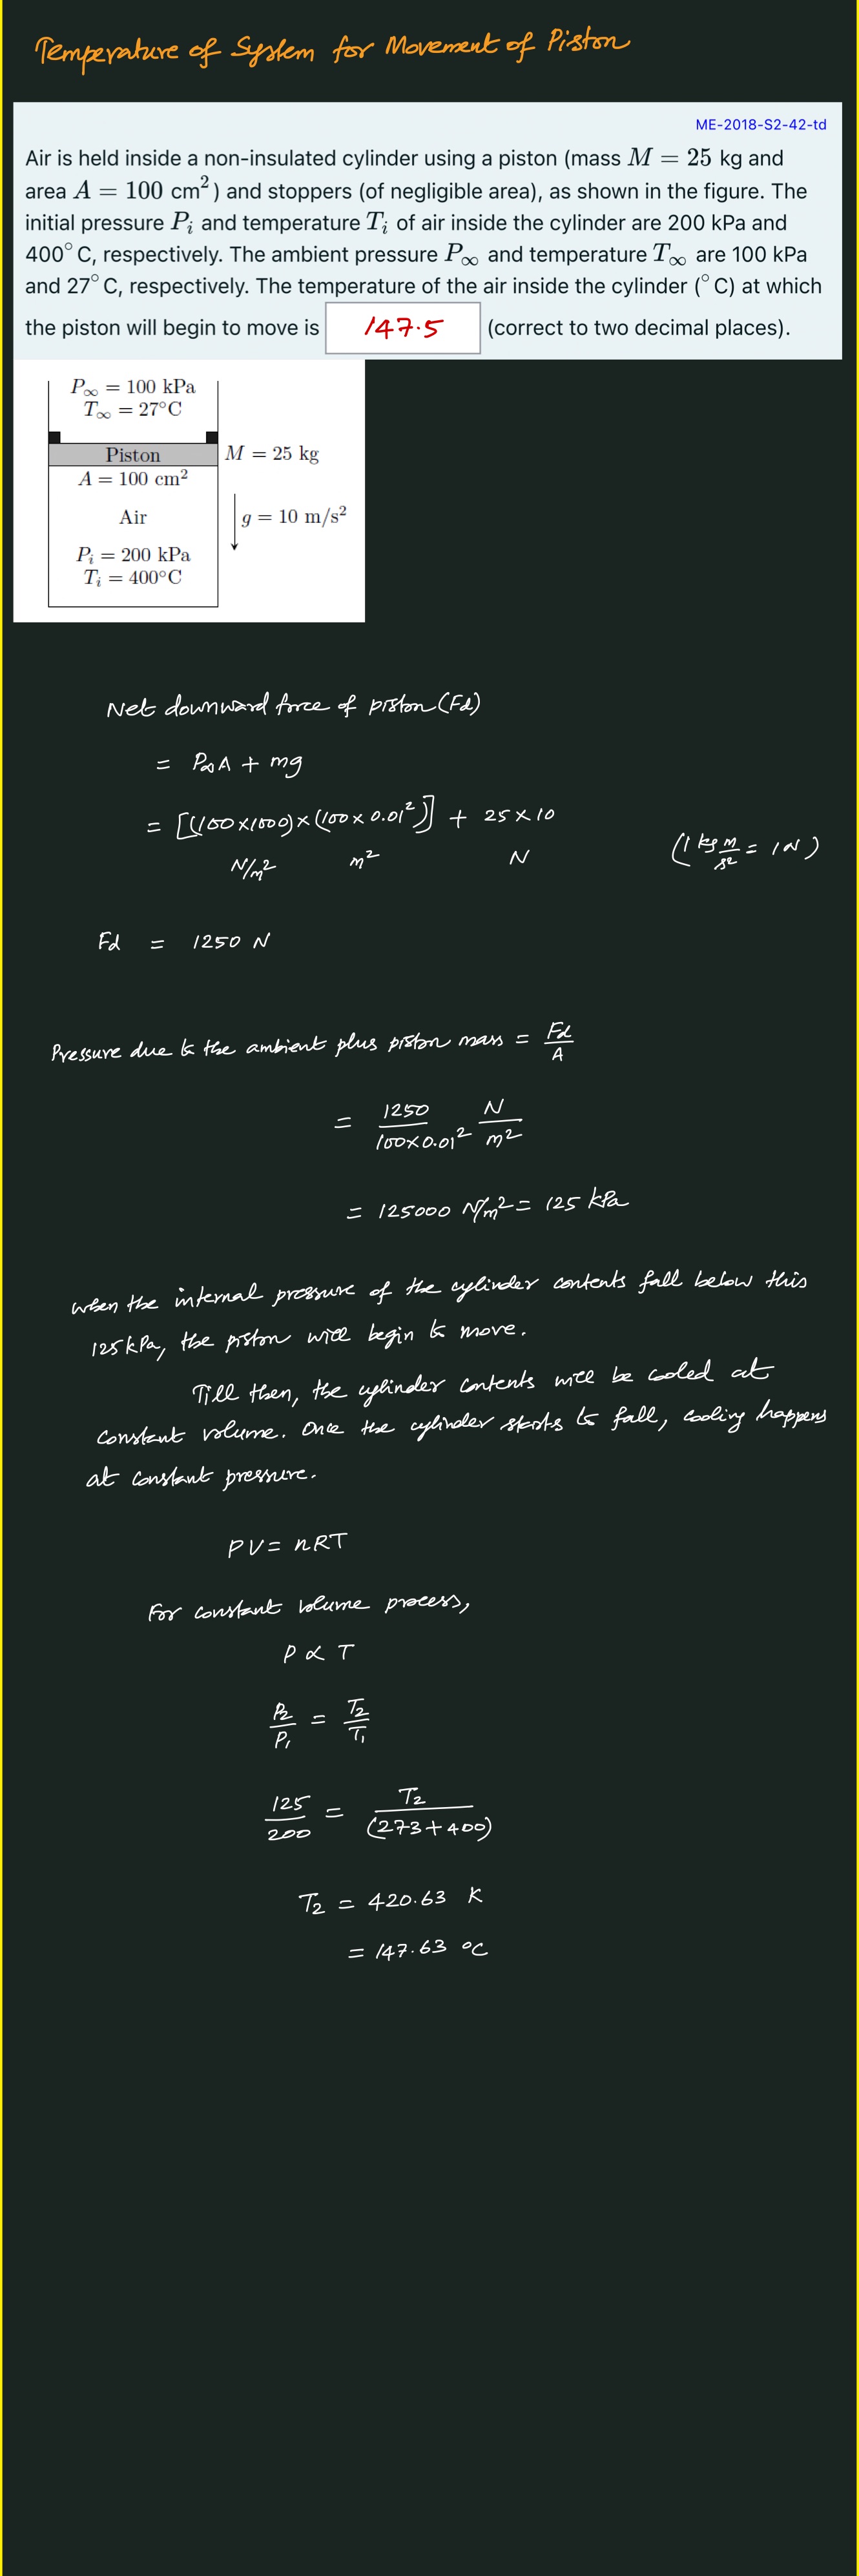 Temperature of System for Movement of Piston
ME-2018-S2-42-td
Air is held inside a non-insulated cylinder using a piston (mass M = 25 kg and
area A = 100 cm²) and stoppers (of negligible area), as shown in the figure. The
initial pressure Pᵢ and temperature Tᵢ of air inside the cylinder are 200 kPa and
400° C, respectively. The ambient pressure P∞ and temperature T∞ are 100 kPa
and 27° C, respectively. The temperature of the air inside the cylinder (° C) at which
the piston will begin to move is 147.5 (correct to two decimal places).
P∞ = 100 kPa
T∞ = 27°C
Piston M = 25 kg
A = 100 cm²
Air g = 10 m/s²
Pᵢ = 200 kPa
Tᵢ = 400°C
Net downward force of piston (Fd)
= P∞A + mg
= [(100×1000)×(100×0.01²)] + 25×10
N/m² m² N (1 kg m/s² = 1N)
Fd = 1250 N
Pressure due to the ambient plus piston mass = Fd/A
= 1250/(100×0.01²) N/m²
= 125000 N/m² = 125 kPa
when the internal pressure of the cylinder contents fall below this
125 kPa, the piston will begin to move.
Till then, the cylinder contents will be cooled at
constant volume. Once the cylinder starts to fall, cooling happens
at constant pressure.
PV = nRT
For constant volume process,
P ∝ T
P₂/P₁ = T₂/T₁
125/200 = T₂/(273+400)
T₂ = 420.63 K
= 147.63 °C